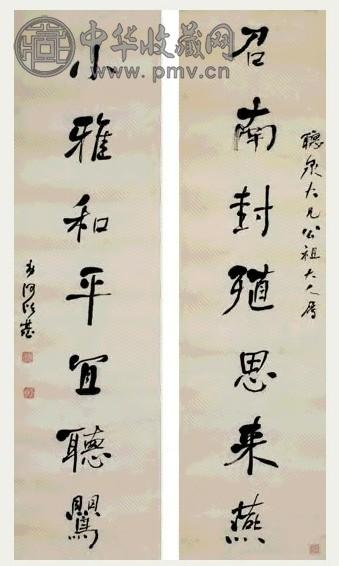 中华收藏网
www.pmv.cn
聽泉大兄公祖大人屬
召南封殖思来燕
小雅和平宜聽鸎
何紹基